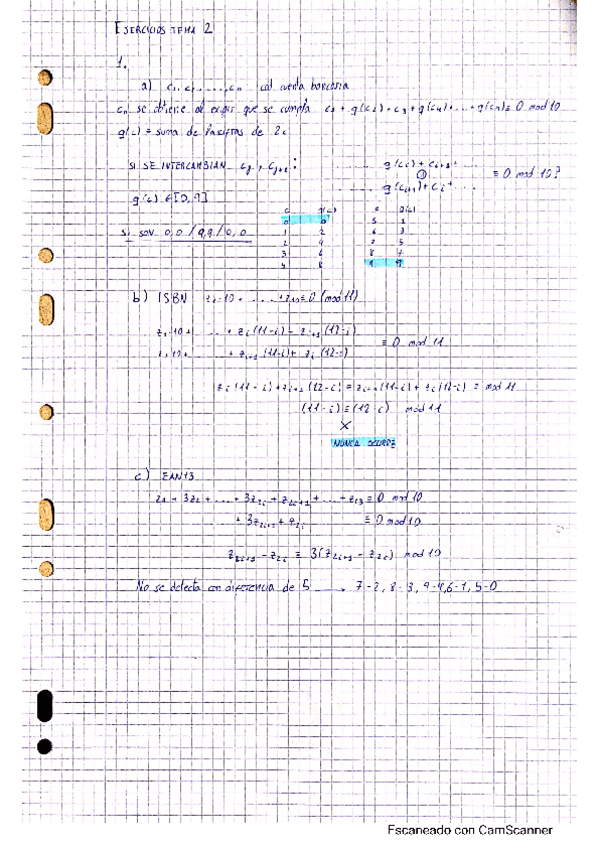 EJERCICIOS TEMA 2
1.
a) c₁, c₂, ....., cₙ cód cuenta bancaria
cₙ se obtiene al exigir que se cumpla c₁ + g(c₂) + c₃ + g(c₄) + ... + g(cₙ) ≡ 0 mod 10
g(c) = suma de las cifras de 2c
SI SE INTERCAMBIAN cⱼ, cⱼ₊₁ :
... g(cᵢ) + cᵢ₊₁ ...
... g(cᵢ₊₁) + cᵢ ...
≡ 0 mod 10?
g(c) ∈ [0,9]
Si son 0,0 / 9,9 / 0,0
c g(c) c g(c)
0 0 5 1
1 2 6 3
2 4 7 5
3 6 8 7
4 8 9 9
b) ISBN z₁·10 + ..... + z₁₀ ≡ 0 (mod 11)
z₁·10 + ... + zᵢ(11-i) + zᵢ₊₁(12-i)
... + zᵢ₊₁(11-i) + zᵢ(12-i)
≡ 0 mod 11
zᵢ(11-i) + zᵢ₊₁(12-i) = zᵢ₊₁(11-i) + zᵢ(12-i) = mod 11
(11-i) ≡ (12-i) mod 11
X
NUNCA OCURRE
c) EAN13
z₁ + 3z₂ + ... + 3z₂ᵢ + z₂ᵢ₊₁ + ... + z₁₃ ≡ 0 mod 10
+ 3z₂ᵢ₊₁ + z₂ᵢ ≡ 0 mod 10
z₂ᵢ₊₁ - z₂ᵢ ≡ 3(z₂ᵢ₊₁ - z₂ᵢ) mod 10
No se detecta con diferencia de 5 → 7-2, 8-3, 9-4, 6-1, 5-0
Escaneado con CamScanner